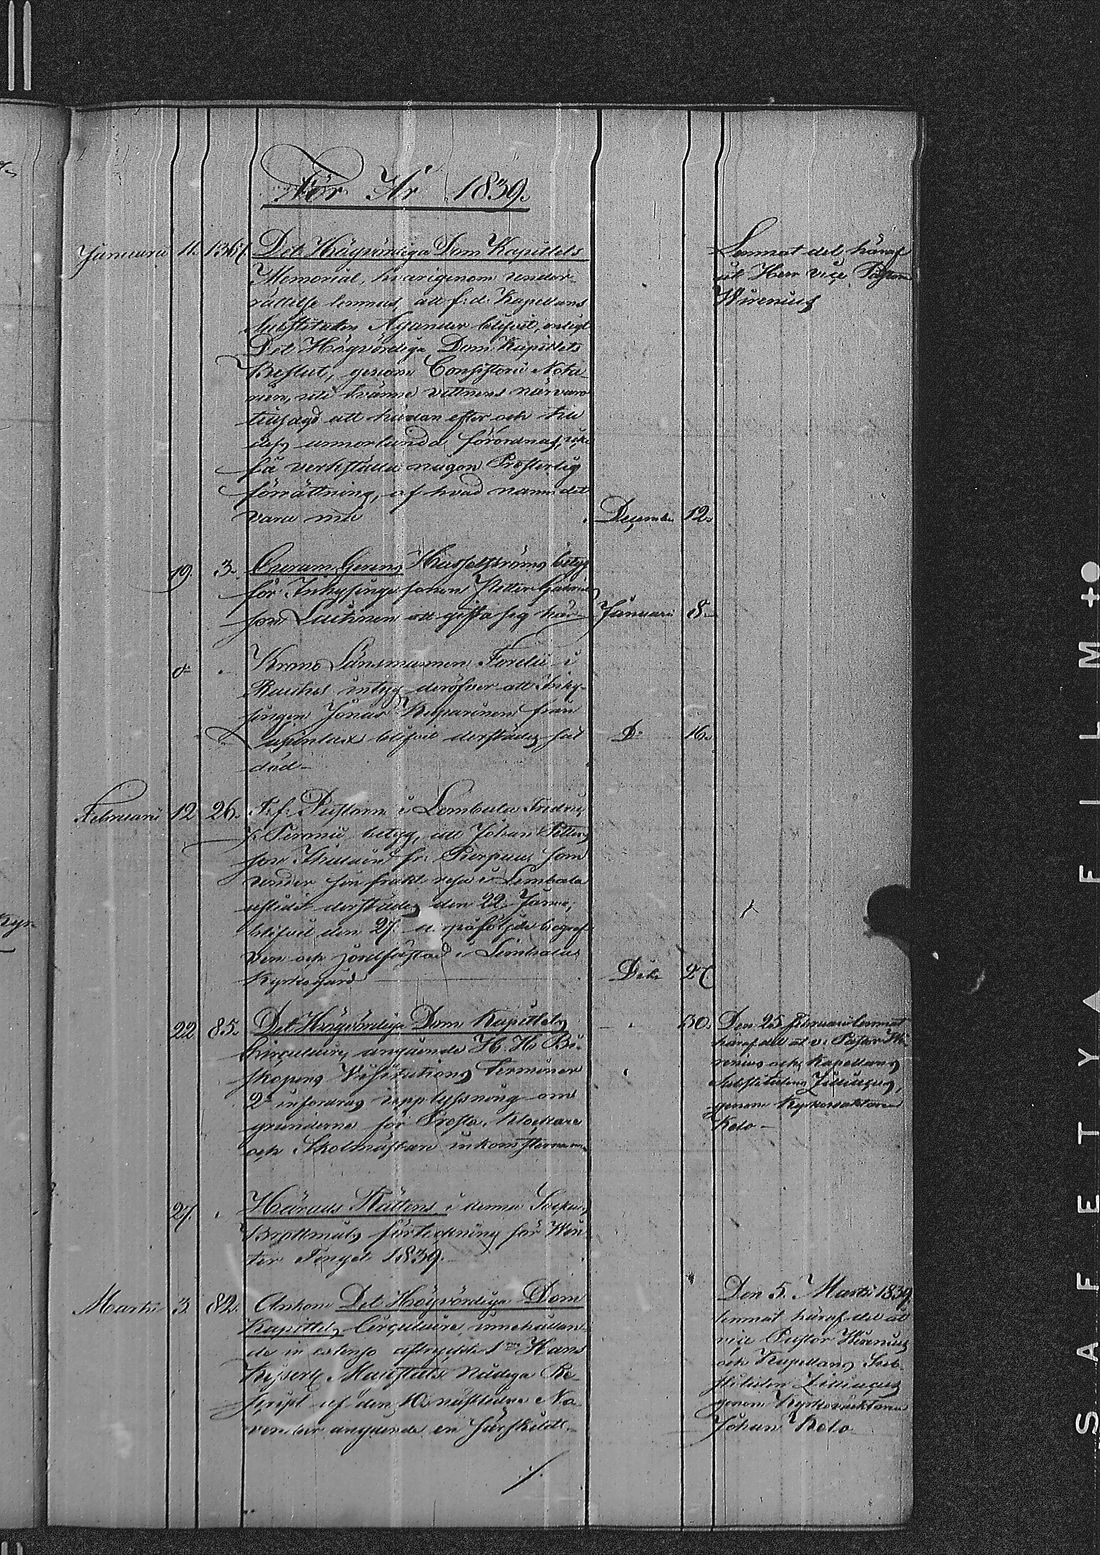 För År 1839.
Januarii 11. 1364 Det Högvördiga Dom Kapitlets
Memorial, hvarigenom under-
rättelse lemnas, att f. d. Kapellans
Substituten Agander blifvit, enligt
Det Högvördiga Dom Kapitlets
Beslut, genom Consistorii Nota-
rien, uti tvänne vittnens närvaro
tillsagd att hädan efter och till
dess annorlunda förordnas, icke
få verkställa någon Presterlig
förrättning, af hvad namn det
vara må
Decembr 12.
Lemnat del häraf
åt Herr vice Pastor
Wirenius
19. 3. Curam Gerens Hasselströms betyg
för Inhysinge sonen Petter
son att gifta sig
Januarii 8.
d° " Krono Länsmannen i
intyg deröfver att
Jonas från
blifvit derstädes
död
D° 16.
Februarii 12. 26. Pastorn i Lembala
betyg, att Johan Petters
son fr. som
under sin frakt resa i Lembala
aflidit derstädes den 22 Janua,
blifvit den 27 derpåföljde begraf-
ven och jordfästad i Lembala
Kyrkogård
Dito 27
22. 85. Det Högvördiga Dom Kapitlets
Circulaire, angående H. H. Bi-
skopens Visitations Terminer
2° infordras upplysning om
grunderne för Prosta, Klockare
och Skolmästare inkomsterna
" 30.
Den 25 Februari lemnat
häraf del åt v. Pastor Wi-
renius och Kapellans
Substituten Lilliacus,
genom Kyrkovaktaren
Kolo
27. " Härads Rättens i denna Socken
Brottmåls förteckning för Win-
ter Tinget 1839.
Martii 3. 82. Ankom Det Högvördiga Dom
Kapitlets Circulaire, innehållan-
de in extenso aftryckte 1mo Hans
Kejserl. Majestäts Nådiga Re-
script af den 10 nästledne No-
vember angående en
Den 5. Martii 1839
lemnat häraf del åt
vice Pastor Wirenius
och Kapellans Sub-
stituten Lilliacus
genom Kyrkovaktaren
Johan Kolo
./.
SAFETY▲FILM